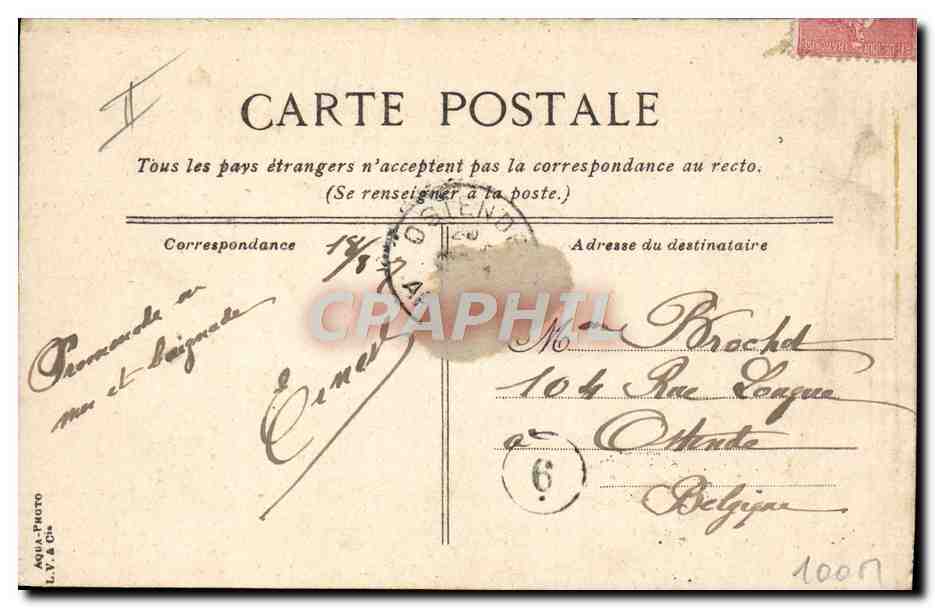 II
CARTE POSTALE
Tous les pays étrangers n'acceptent pas la correspondance au recto.
(Se renseigner à la poste.)
Correspondance
18/8
Promenade en
mer et baignade
Ernest
Adresse du destinataire
OSTENDE
CPAPHIL
Mme Brochet
104 Rue Longue
à Ostende
Belgique
6
AQUA-PHOTO
L.V. & Cie